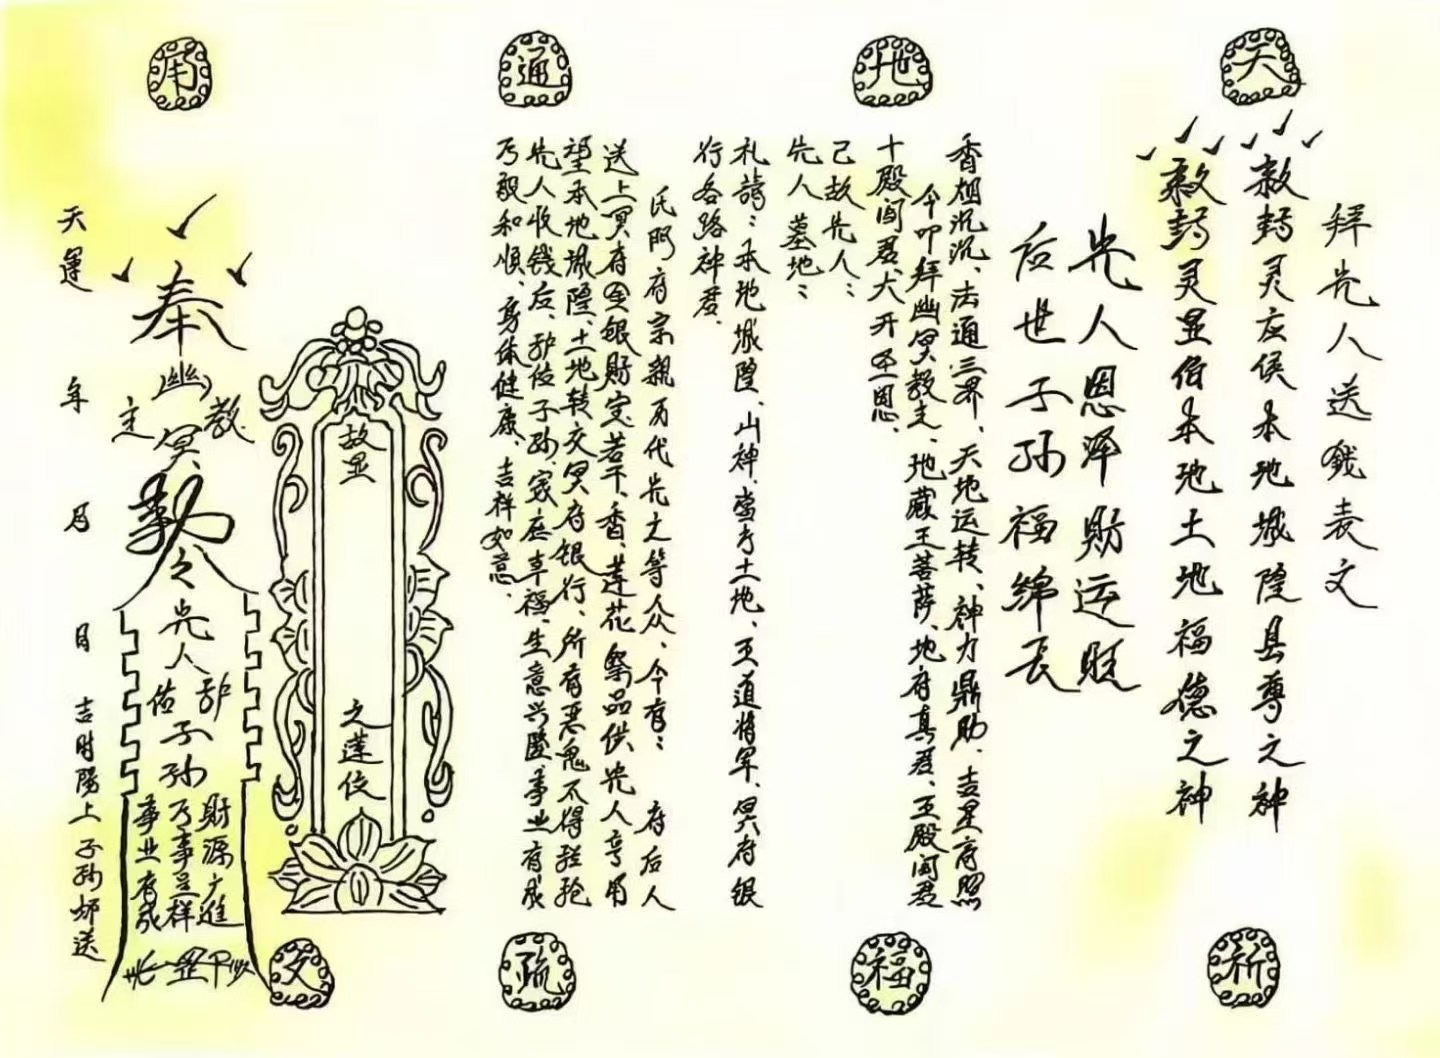 天地通用
拜先人送錢表文
敕封灵应侯本地城隍县尊之神
敕封灵显伯本地土地福德之神
先人恩泽财运旺
后世子孙福绵长
香烟沉沉、法通三界、天地运转、神力鼎助、吉星高照
今叩拜幽冥教主、地藏王菩萨、地府真君、王殿阎君
十殿阎君大开圣恩、
己故先人：
先人墓地：
礼請：本地城隍、山神、當方土地、五道将军、冥府银
行各路神君、
氏門府宗親历代先之等众、今有：府后人
送上冥府金银財宝若干、香、莲花祭品供先人享用
望本地城隍、土地转交冥府银行、所有恶鬼不得拦抢
先人收钱后、护佑子孙、家庭幸福、生意兴隆、事业有成
乃毅和順、身体健康、吉祥如意、
故显
之莲位
奉幽冥教主
勅令先人护佑子孙
財源广進
万事呈祥
事业有成
天運 年 月 日 吉时陽上子孙 送
祈福疏文